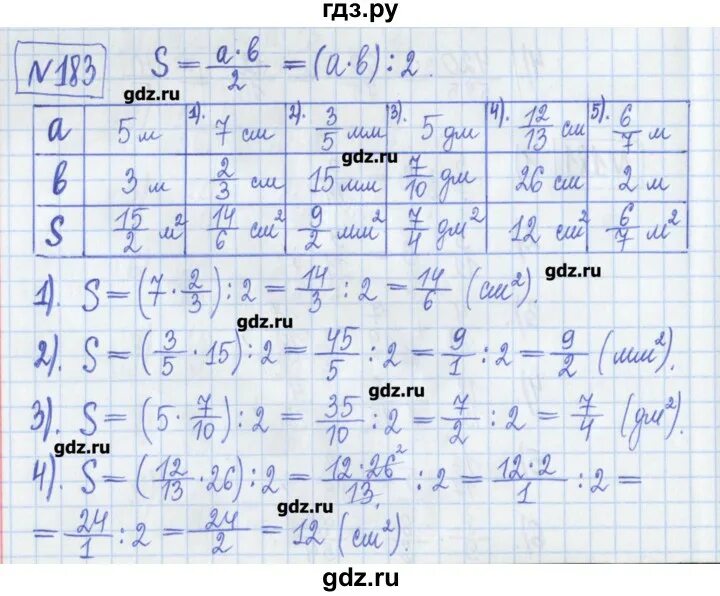 гдз.ру
№183 S = a·b/2 = (a·b) : 2.
gdz.ru
a 5 м 1). 7 см 2). 3/5 мм 3). 5 дм 4). 12/13 см 5). 6/7 м
gdz.ru
b 3 м 2/3 см 15 мм 7/10 дм 26 см 2 м
S 15/2 м² 14/6 см² 9/2 мм² 7/4 дм² 12 см² 6/7 м²
gdz.ru
1). S = (7 · 2/3) : 2 = 14/3 : 2 = 14/6 (см²).
gdz.ru
2). S = (3/5 · 15) : 2 = 45/5 : 2 = 9/1 : 2 = 9/2 (мм²).
gdz.ru
3). S = (5 · 7/10) : 2 = 35/10 : 2 = 7/2 : 2 = 7/4 (дм²).
gdz.ru
4). S = (12/13 · 26) : 2 = 12·26²/13 : 2 = 12·2/1 : 2 =
gdz.ru
= 24/1 : 2 = 24/2 = 12 (см²).
gdz.ru